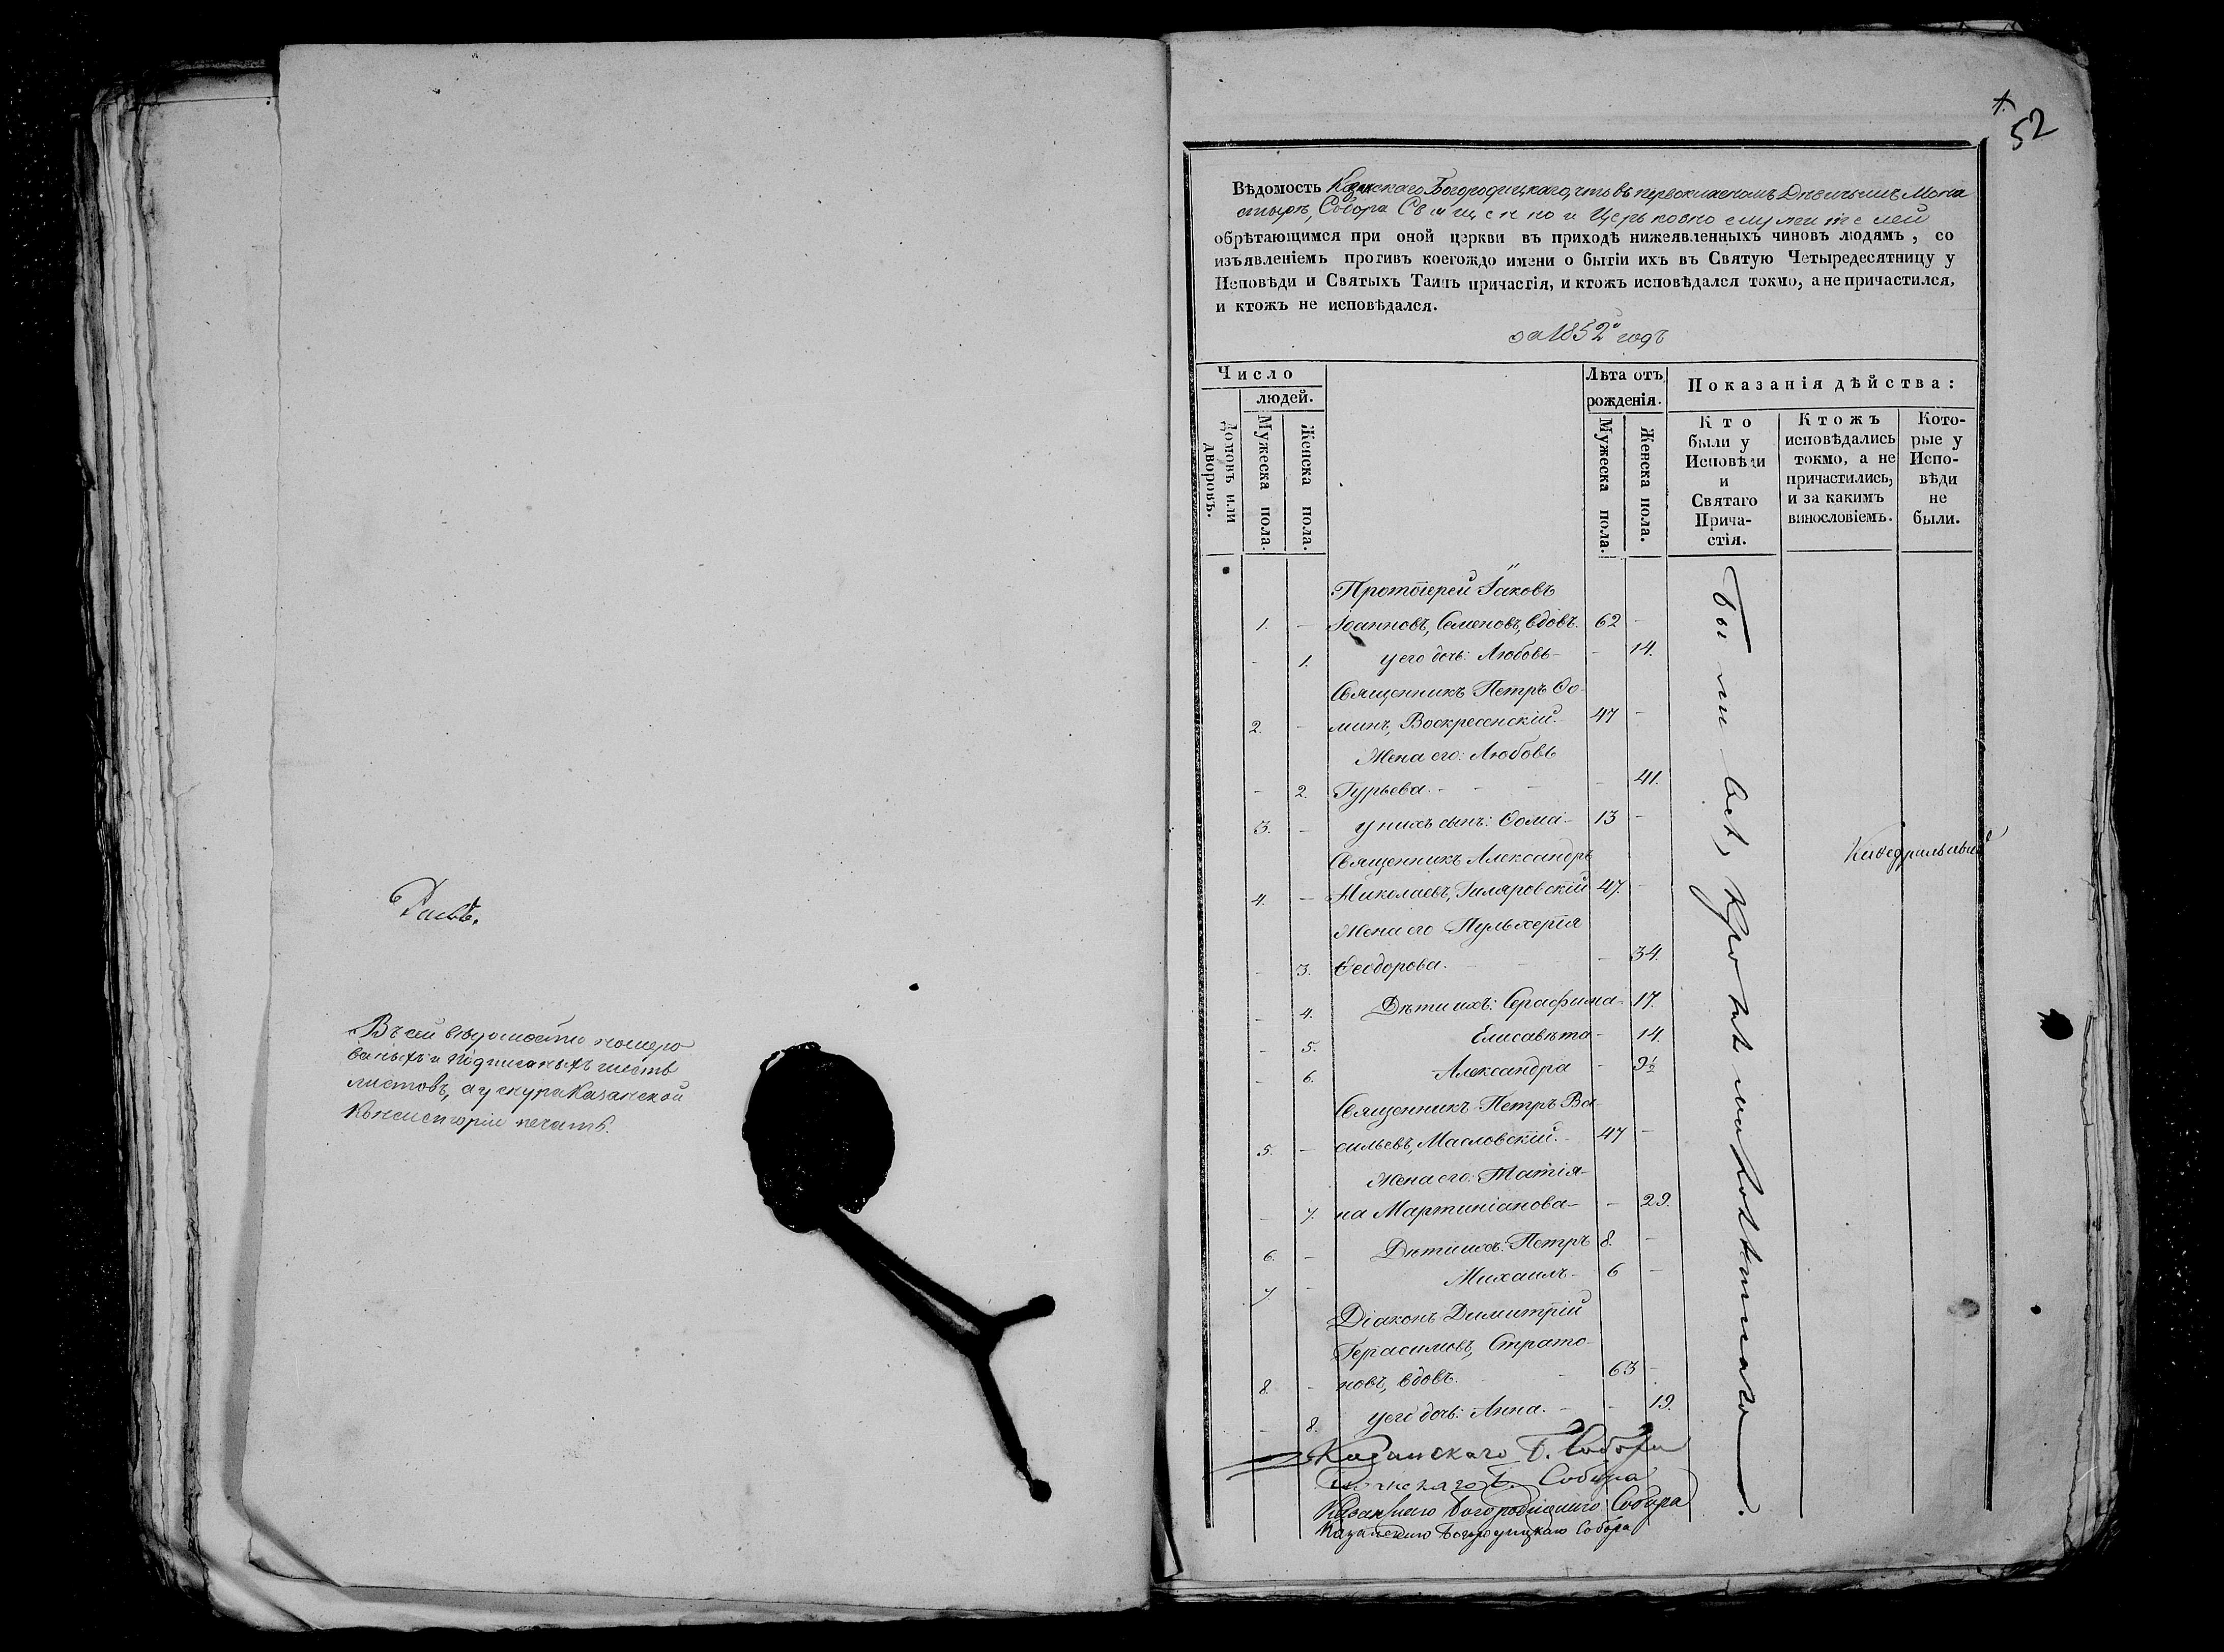 Въ сей вѣдомости номеро
ваныхъ и подписаныхъ шесть
листовъ, а у снура Казанской
Консисторіи печать.
1.
52
Вѣдомость Казанскаго Богородицкаго, что въ первокласномъ Дѣвичьемъ Мона
стырѣ, Собора Священно и Церьковно служителей
обрѣтающимся при оной церкви въ приходѣ нижеявленныхъ чиновъ людямъ, со
изъявленіемъ противъ коегождо имени о бытіи ихъ въ Святую Четыредесятницу у
Исповѣди и Святыхъ Таинъ причастія, и ктожъ исповѣдался токмо, а не причастился,
и ктожъ не исповѣдался.
за 1852й годъ
Число
людей.
Домовъ или дворовъ.
Мужеска пола.
Женска пола.
Лѣта отъ
рожденія.
Мужеска пола.
Женска пола.
Показанія дѣйства:
Кто
были у
Исповѣди
и
Святаго
Прича-
стія.
Ктожъ
исповѣдались
токмо, а не
причастились,
и за какимъ
винословіемъ.
Кото-
рые у
Испо-
вѣди
не
были.
Протоіерей Іаковъ
1. - Іоанновъ, Семеновъ, вдовъ. 62 -
- 1. у его дочь: Любовь - - 14.
Священникъ Петръ Ѳо-
2. - минъ, Воскресенскій. 47 -
Жена его: Любовь
- 2. Гурьева. - - 41.
3. - у нихъ сынъ: Ѳома - 13 -
Священникъ Александръ
4. - Николаевъ, Гиляровскій 47. -
Жена его Пульхерія
- 3. Ѳеодорова. - - 34.
- 4. Дѣти ихъ: Серафима - 17.
- 5. Елисавѣта - 14.
- 6. Александра - 9½
Священникъ Петръ Ва-
5. - сильевъ, Масловскій. - 47 -
Жена его: Татія-
- 7. на Мартиніанова - - 29.
6. - Дѣти ихъ: Петръ 8. -
7. - Михаилъ - 6 -
Діаконъ Димитрій
Герасимовъ, Страто-
8. - новъ, вдовъ. - 63 -
- 8. у его дочь: Анна. - - 19.
Были всѣ, кромѣ
Каѳедральный
Казанскаго Б. Собора
Собора
Казанскаго Богородицкаго Собора
Казанскаго Богородицкаго Собора